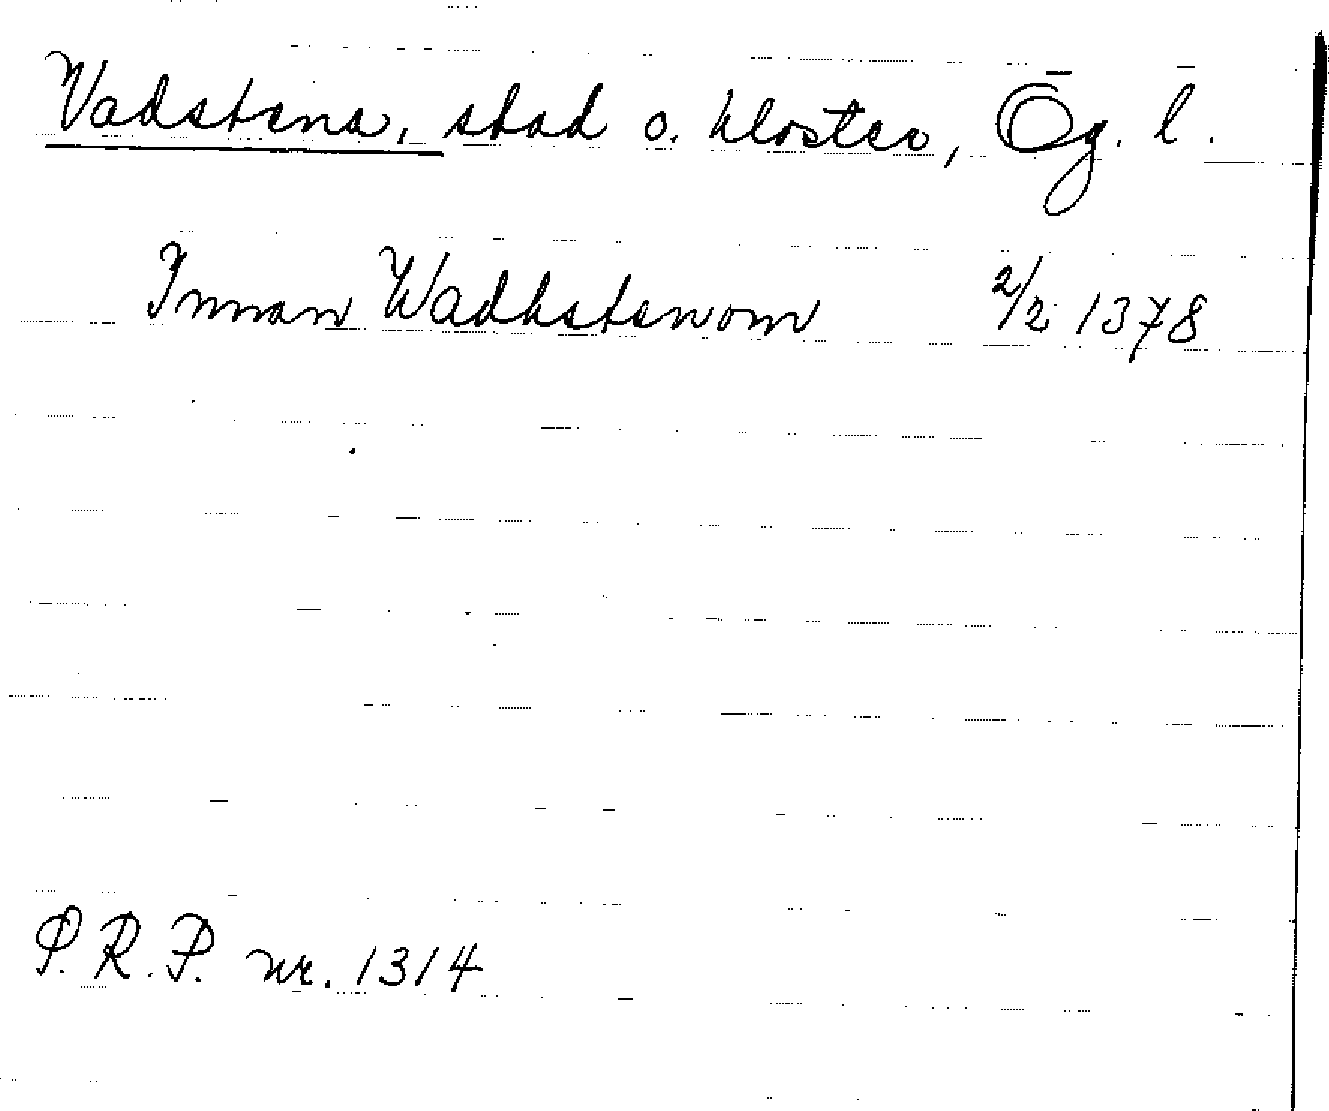 Vadstena, stad o. kloster, Ög. l.
Innan Wadhstenom 2/2 1378
P.R.P. nr. 1314